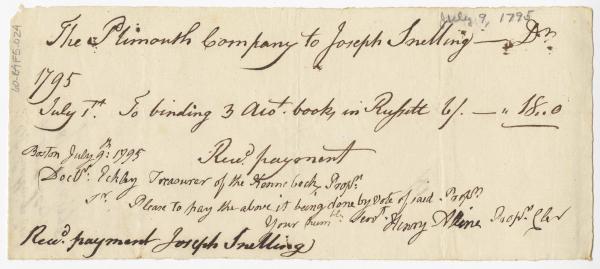 July 9, 1795
The Plimouth Company to Joseph Snelling — Dr.
1795
July 1st. To binding 3 Acot. books in Russitt 6/. — " 18..0
Recd. payment
Boston July 9th. 1795
Treasurer of the Kennebeck Propr.
Sr. Please to pay the above it being done by Vote of said Propr.
Your humble. Servt. Henry Alline Propr. Cler
Recd. payment Joseph Snelling